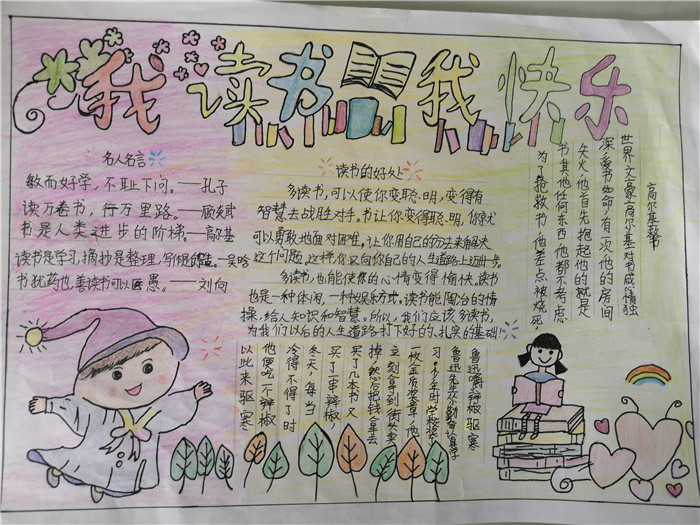 我读书 我快乐
名人名言
敏而好学，不耻下问。——孔子
读万卷书，行万里路。——顾炎武
书是人类进步的阶梯。——高尔基
读书是学习，摘抄是整理，写作是创造。——吴晗
书犹药也，善读书可以医愚。——刘向
读书的好处
多读书，可以使你变聪明，变得有
智慧去战胜对手。书让你变得聪明，你就
可以勇敢地面对困难。让你用自己的方法来解决
这个问题。这样你又向你自己的人生道路上迈出一步。
多读书，也能使你的心情变得愉快。读书
也是一种休闲，一种娱乐方式。读书能陶冶的情
操，给人知识和智慧。所以，我们应该多读书，
为我们以后的人生道路打下好的、扎实的基础！
高尔基救书
世界文豪高尔基对书感情独
深，爱书如命，有一次他的房间
失火他首先抱起他的就是
书其他任何东西他都不考虑
为抢救书，他差点被烧死
鲁迅嚼辣椒驱寒
鲁迅先生从小勤奋
习，少年时，学校奖
一枚金质奖章，他
立刻拿到街头卖
掉，然后把钱拿去
买了几本书，又
买了串辣椒
冬天，每当
冷得不得了时
他便吃一辣椒
以此来驱寒